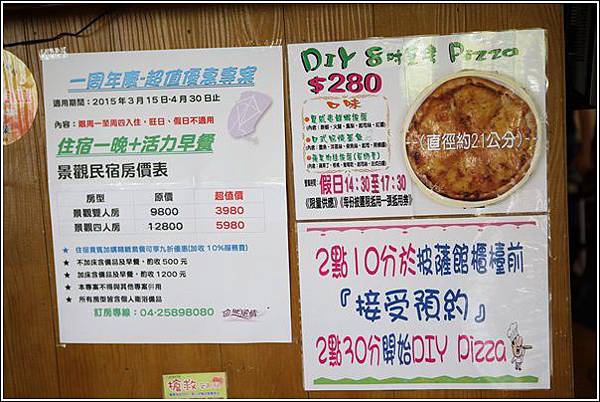 一周年慶-超值優惠專案
適用期間：2015年3月15日-4月30日止
內容：限周一至周四入住，旺日、假日不適用
住宿一晚+活力早餐
景觀民宿房價表
房型 原價 超值價
景觀雙人房 9800 3980
景觀四人房 12800 5980
★ 住宿貴賓加購精緻套餐可享九折優惠(加收10%服務費)
★ 不加床含備品及早餐，酌收500元
★ 加床含備品及早餐，酌收1200元
★ 本專案不得與其他專案併用
★ 所有房型皆含個人衛浴備品
訂房專線：04-25898080
DIY 8吋 Pizza
$280
口味
(直徑約21公分)
假日14:30至17:30
2點10分於披薩館櫃檯前
『接受預約』
2點30分開始DIY Pizza
搶救